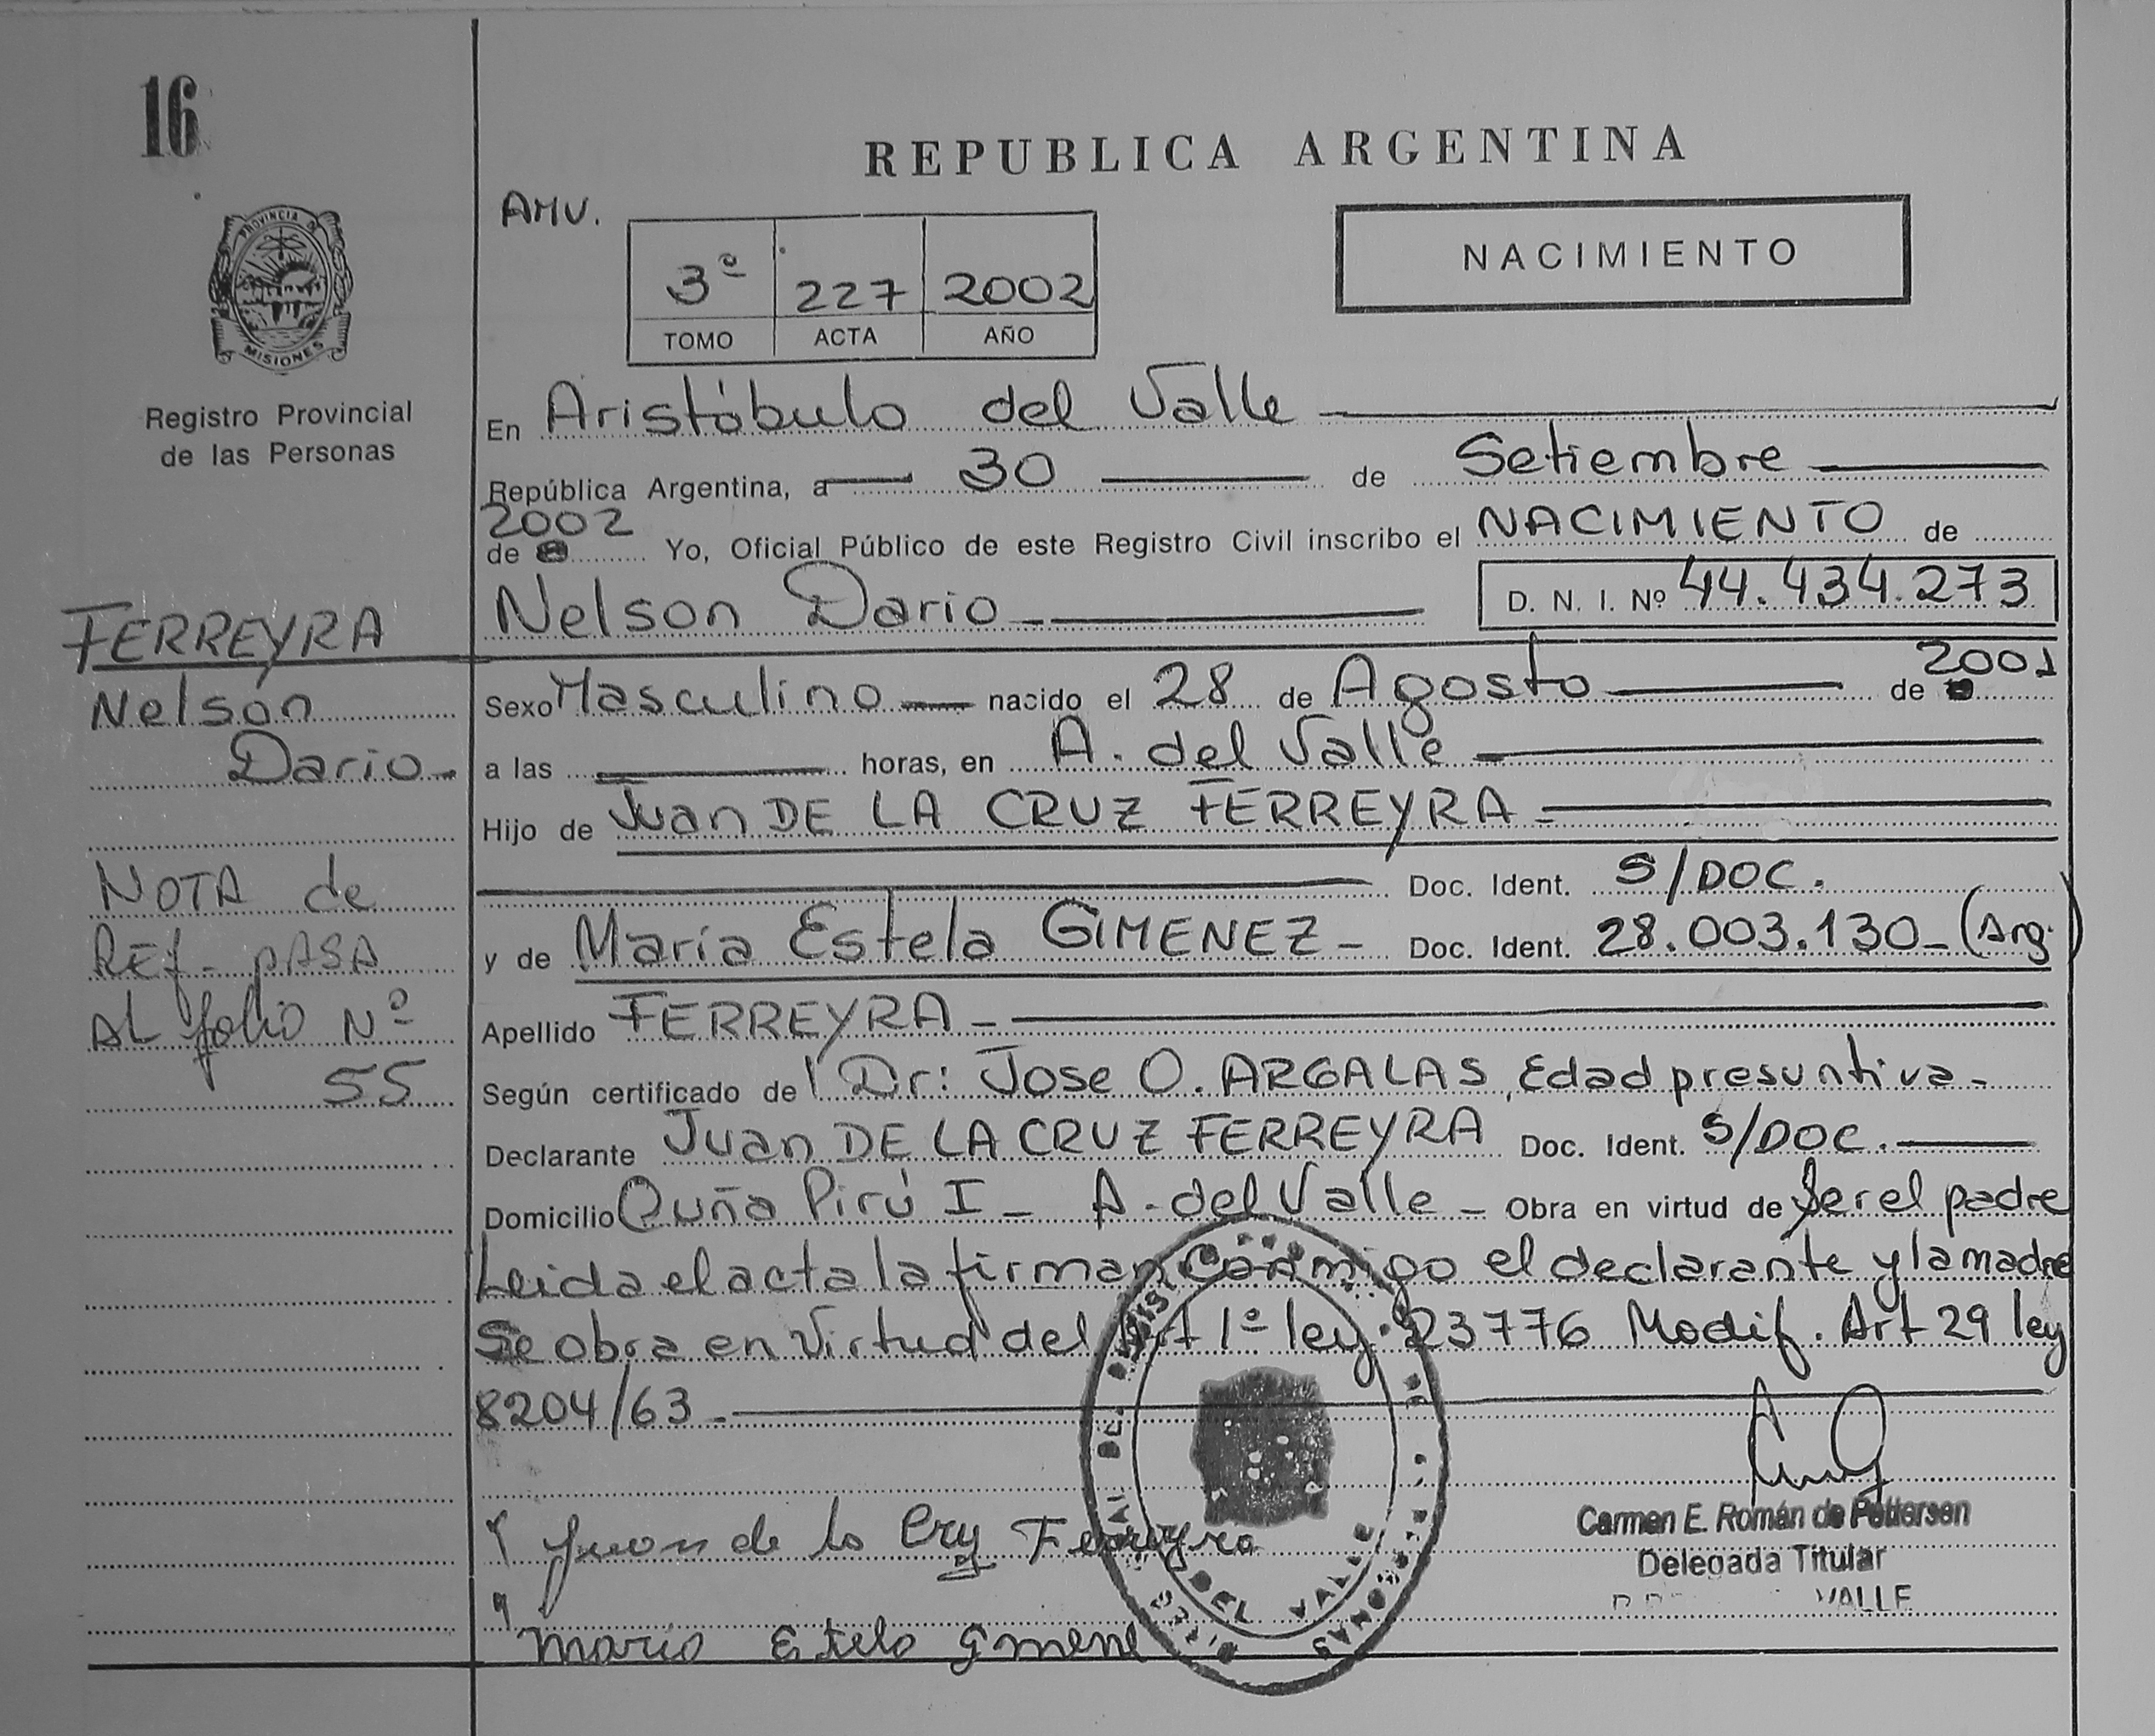 16
REPUBLICA ARGENTINA
AMV.
3º 227 2002
TOMO ACTA AÑO
NACIMIENTO
PROVINCIA DE
MISIONES
Registro Provincial
de las Personas
En Aristóbulo del Valle
República Argentina, a 30 de Setiembre
2002
de Yo, Oficial Público de este Registro Civil inscribo el NACIMIENTO de
Nelson Dario D. N. I. Nº 44.434.273
FERREYRA
Nelson
Dario
Sexo Masculino nacido el 28 de Agosto de 2001
a las horas, en A. del Valle
Hijo de Juan DE LA CRUZ FERREYRA
Doc. Ident. S/DOC.
y de María Estela GIMENEZ Doc. Ident. 28.003.130 (Arg.)
Apellido FERREYRA
NOTA de
REf- pASA
AL folio Nº
55
Según certificado de Dr: Jose O. ARGALAS, Edad presuntiva
Declarante Juan DE LA CRUZ FERREYRA Doc. Ident. S/DOC.
Domicilio Cuña Pirú I - A. del Valle - Obra en virtud de Ser el padre
Leida el acta la firman conmigo el declarante y la madre
Se obra en Virtud del Art 1º ley 23776 Modif. Art 29 ley
8204/63
Juan de la Cruz Ferreyra
Maria Estela
Carmen E. Román de Pettersen
Delegada Titular
VALLE
DEL VALLE